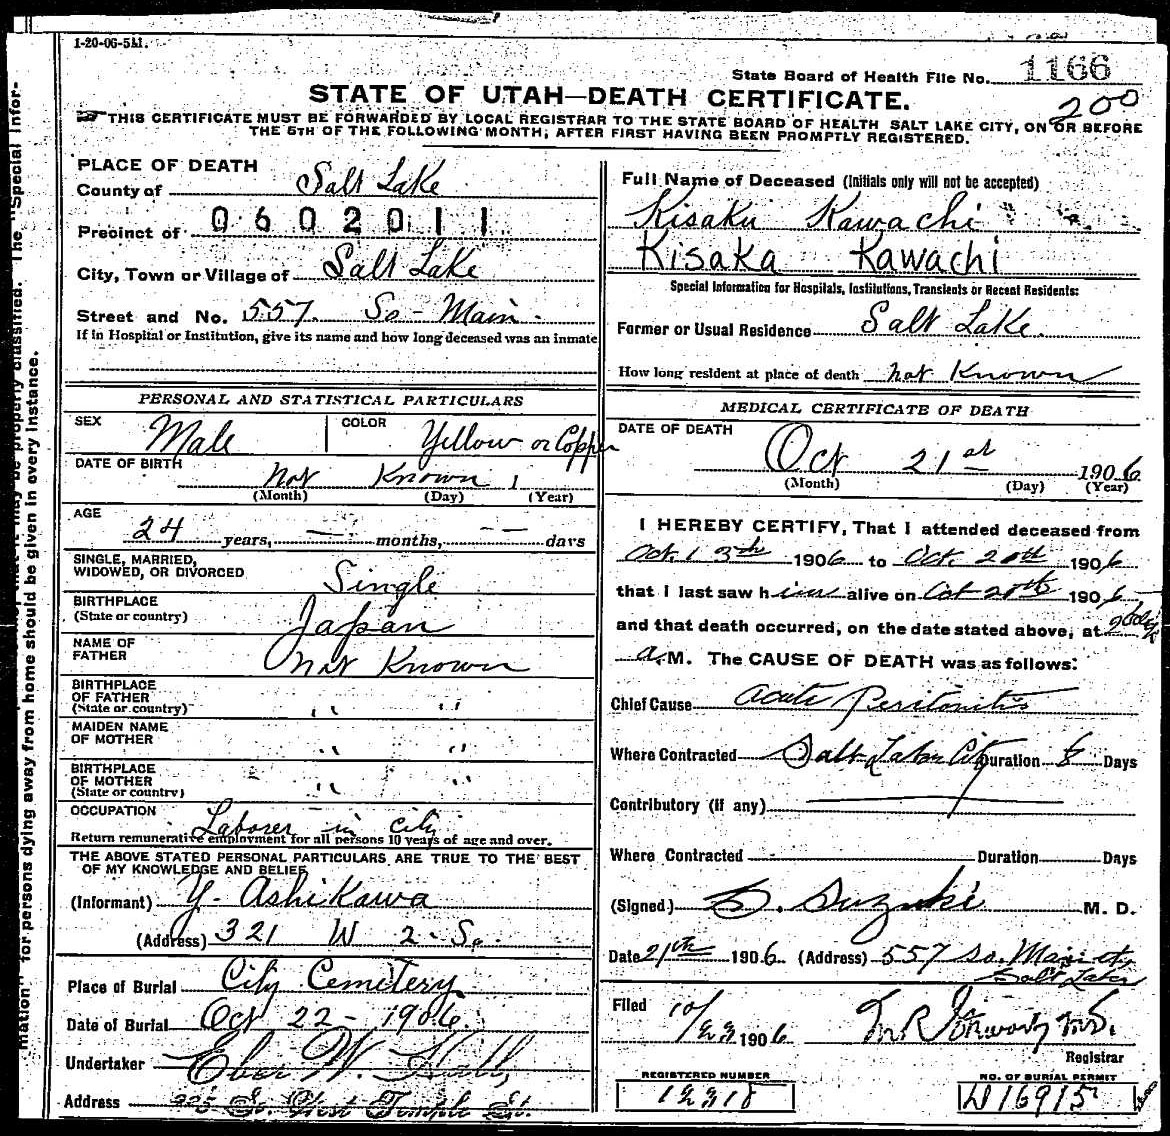 1-20-06-5M.
State Board of Health File No. 1166
200
STATE OF UTAH—DEATH CERTIFICATE.
THIS CERTIFICATE MUST BE FORWARDED BY LOCAL REGISTRAR TO THE STATE BOARD OF HEALTH SALT LAKE CITY, ON OR BEFORE
THE 5TH OF THE FOLLOWING MONTH, AFTER FIRST HAVING BEEN PROMPTLY REGISTERED.
PLACE OF DEATH
County of Salt Lake
Precinct of 0602011
City, Town or Village of Salt Lake
Street and No. 557 So - Main.
If in Hospital or Institution, give its name and how long deceased was an inmate
Full Name of Deceased (Initials only will not be accepted)
Kisaku Kawachi
Kisaka Kawachi
Special Information for Hospitals, Institutions, Transients or Recent Residents:
Former or Usual Residence Salt Lake.
How long resident at place of death not Known
PERSONAL AND STATISTICAL PARTICULARS
SEX Male COLOR Yellow or Copper
DATE OF BIRTH not Known 1
(Month) (Day) (Year)
AGE
24 years, — months, — — days
SINGLE, MARRIED,
WIDOWED, OR DIVORCED Single
BIRTHPLACE
(State or country) Japan
NAME OF
FATHER not Known
BIRTHPLACE
OF FATHER
(State or country) " "
MAIDEN NAME
OF MOTHER " "
BIRTHPLACE
OF MOTHER
(State or country) " "
OCCUPATION Laborer in city
Return remunerative employment for all persons 10 years of age and over.
THE ABOVE STATED PERSONAL PARTICULARS ARE TRUE TO THE BEST
OF MY KNOWLEDGE AND BELIEF
(Informant) Y. Ashikawa
(Address) 321 W 2 - So.
Place of Burial City Cemetery
Date of Burial Oct 22 - 1906
Undertaker Eber W. Hall,
Address 925 So. West Temple St.
MEDICAL CERTIFICATE OF DEATH
DATE OF DEATH
Oct 21st 1906
(Month) (Day) (Year)
I HEREBY CERTIFY, That I attended deceased from
Oct. 13th 1906 to Oct. 20th 1906
that I last saw him alive on Oct 20th 1906
and that death occurred, on the date stated above, at
a.M. The CAUSE OF DEATH was as follows:
Chief Cause acute Peritonitis
Where Contracted Salt Lake City Duration 8 Days
Contributory (if any)
Where Contracted Duration Days
(Signed) Suzuki M. D.
Date 21th 1906 (Address) 557 So. Main st.
Salt Lake
Filed 10/23 1906
Registrar
REGISTERED NUMBER
NO. OF BURIAL PERMIT
W16915
mation" for persons dying away from home should be given in every instance.